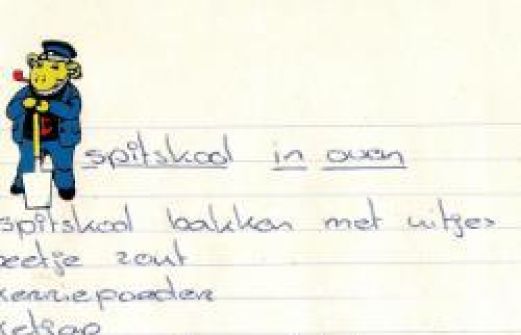 spitskool in oven
spitskool bakken met uitjes
beetje zout
kerriepoeder
ketjap